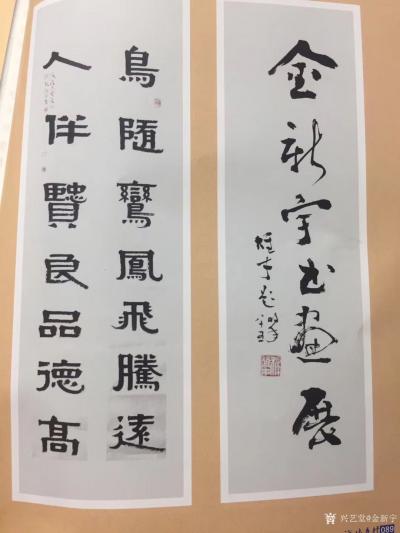 金新宇书畫展
鳥隨鸞鳳飛騰遠
人伴賢良品德高
089
兴艺堂@金新宇